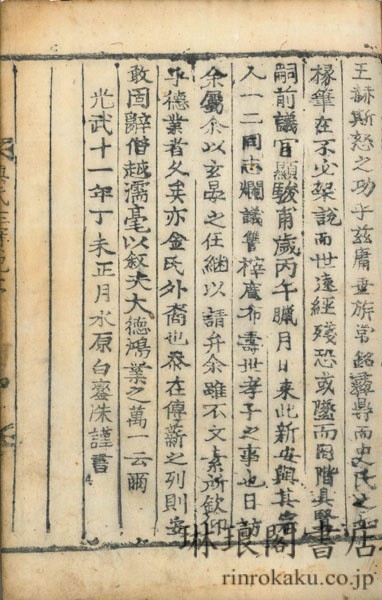 王赫斯怒之功乎茲庸垂族常銘彝鼎而史氏之
椽筆在不必架說而世遠經殘恐或墜而因階具賢
嗣前議官顯駿甫歲丙午臘月日來此新安與其宗
人一二同志爛議讐梓廣布壽世孝子之事也日訪
余屬余以玄晏之任継以請弁余雖不文素所歆仰
乎德業者久矣亦金氏外裔也忝在傳薪之列則安
敢固辭僭越濡毫以叙夫大德鴻業之萬一云爾
光武十一年丁未正月水原白洙謹書
琳琅閣書店
rinrokaku.co.jp